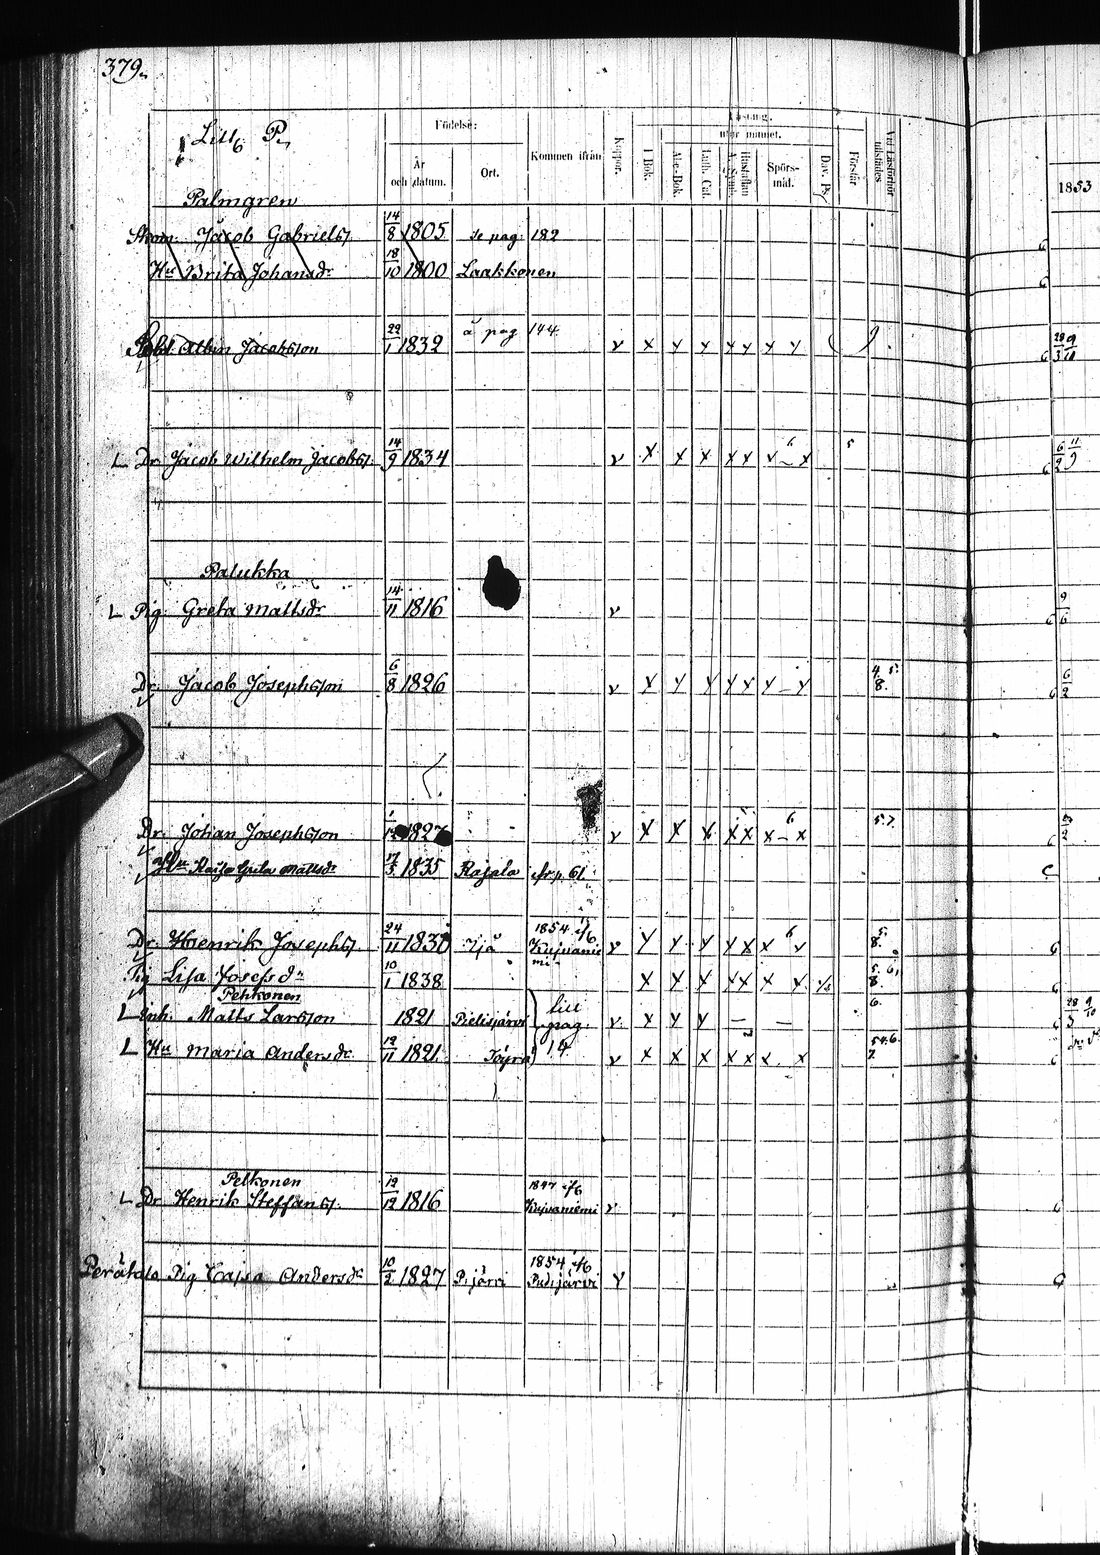 379.
Litt. P.
Födelse:
År och datum.
Ort.
Kommen ifrån
Koppor.
Läsning,
utur minnet.
I Bok.
Ab-c-Bok.
Luth. Cat.
Hustaflan
Spörsmål.
Dav. Ps.
Förstår
Vid Läsförhör tillstädes
1853
Palmgren
Jacob Gabrielss. 14/8 1805 se pag 182
Hu Brita Johansdr 18/10 1800 Laakkonen
Albin Jacobsson 22/1 1832 å pag 144 v x x x x x x x
L Dr. Jacob Wilhelm Jacobss. 14/9 1834 v x x x x x x 6 x 5
Palukka
L Pig. Greta Mattsdr 14/11 1816 v
Dr. Jacob Josephsson 6/8 1826 v x x x x x x - x 4. 5. 8.
Dr. Johan Josephsson 1827 v x x x x x x 6 x 5. 7.
Hu Kaisa Greta Mattsdr 17/5 1835 Rajala fr. p. 61
Dr. Henrik Josephss. 24/11 1830 Ijå 1854 Kujvaniemi v x x x x x x 6 x 5. 8.
Pig Lisa Josefsdr 10/1 1838 x x x x x x x 5. 6. 8.
Pehkonen
L Inh. Matts Larsson 1821 Pielisjärvi litt pag. 14 v x x x — — 6.
L Hu Maria Andersdr 12/11 1821 v x x x x x x x
Pelkonen
L Dr Henrik Steffanss. 12/12 1816 1847 Kujvaniemi v
Perätalo Pig Cajsa Andersdr 10/2 1827 P.järvi 1854 Pudasjärvi v